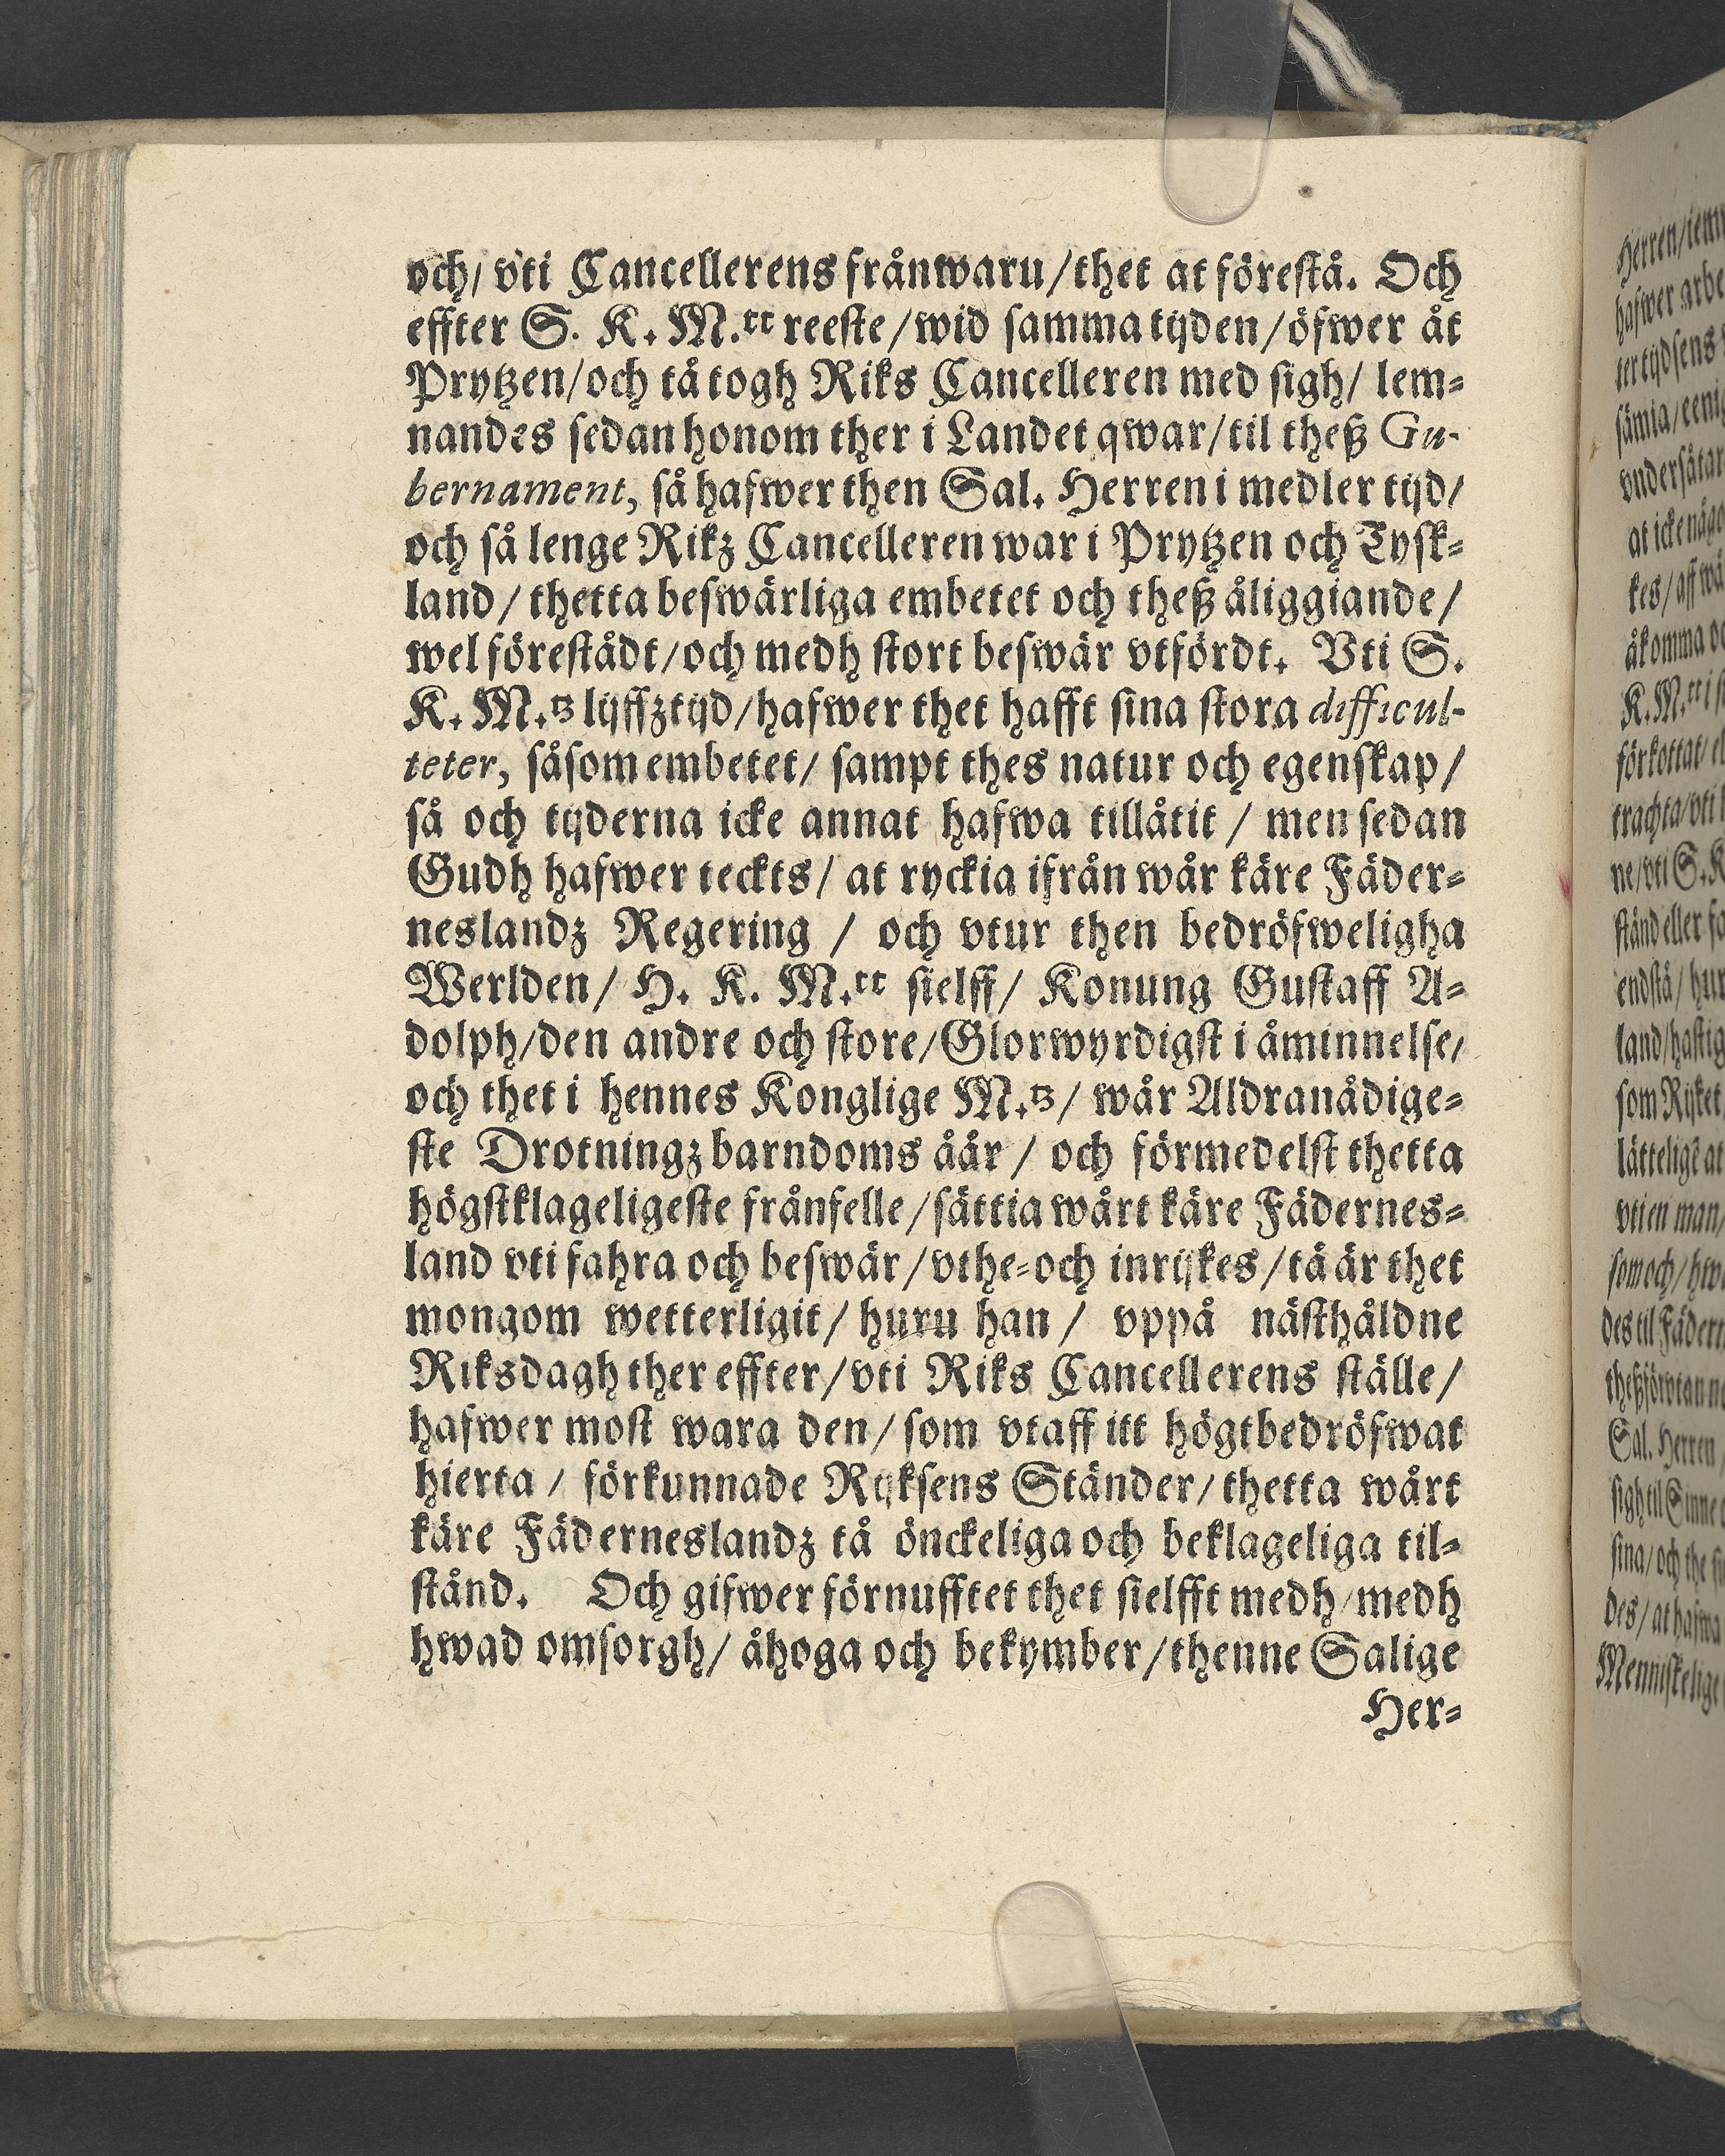 och/ vti Cancellerens frånwaru/thet at förestå. Och
effter S. K. M.tt reeste/wid samma tijden/öfwer åt
Prytzen/och tå togh Riks Cancelleren med sigh/ lem-
nandes sedan honom ther i Landet qwar/til theß Gu-
bernament, så hafwer then Sal. Herren i medler tijd/
och så lenge Rikz Cancelleren war i Prytzen och Tysk-
land/ thetta beswärliga embetet och theß åliggiande/
wel förestådt/och medh stort beswär vtfördt. Vti S.
K. M.tz lijffztijd/hafwer thet hafft sina stora difficul-
teter, såsom embetet/ sampt thes natur och egenskap/
så och tijderna icke annat hafwa tillåtit / men sedan
Gudh hafwer teckts/ at ryckia ifrån wår käre Fäder-
neslandz Regering / och vtur then bedröfweligha
Werlden/ H. K. M.tt sielff/ Konung Gustaff A-
dolph/den andre och store/Glorwyrdigst i åminnelse/
och thet i hennes Konglige M.tz/ wår Aldranådige-
ste Drotningz barndoms åår / och förmedelst thetta
högstklageligeste frånfelle/sättia wårt käre Fädernes-
land vti fahra och beswär/vthe-och inrijkes/tå är thet
mongom wetterligit/ huru han / vppå nästhåldne
Riksdagh ther effter/vti Riks Cancellerens ställe/
hafwer most wara den/ som vtaff itt högtbedröfwat
hierta / förkunnade Rijksens Ständer/ thetta wårt
käre Fäderneslandz tå önckeliga och beklageliga til-
stånd. Och gifwer förnufftet thet sielfft medh/medh
hwad omsorgh/ åhoga och bekymber/thenne Salige
Her-
Herren/
hafwer arbe
tertijdsens
sämia/eeni
vndersåtar
at icke någo
kes/aff wå
åkomma oc
K.M.tt i
förkottat/el
trachta/vti
ne/vti S.K
stånd eller
endstå/hur
land/hastig
som Rijket
vti en man/
som och/
des til Fädern
Sal. Herren
sigh til Sinne
sina/och the
des/at hafwa
Menniskelige